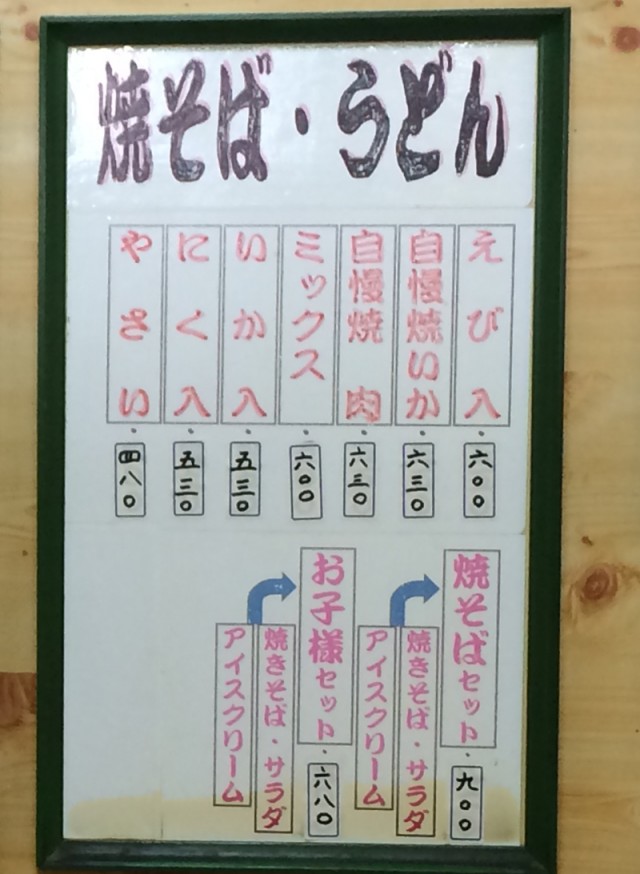 焼そば・うどん
えび入・六〇〇
自慢焼いか・六三〇
自慢焼肉・六三〇
ミックス・六〇〇
いか入・五三〇
にく入・五三〇
やさい・四八〇
焼そばセット・九〇〇
焼きそば・サラダ
アイスクリーム
お子様セット・六八〇
焼きそば・サラダ
アイスクリーム